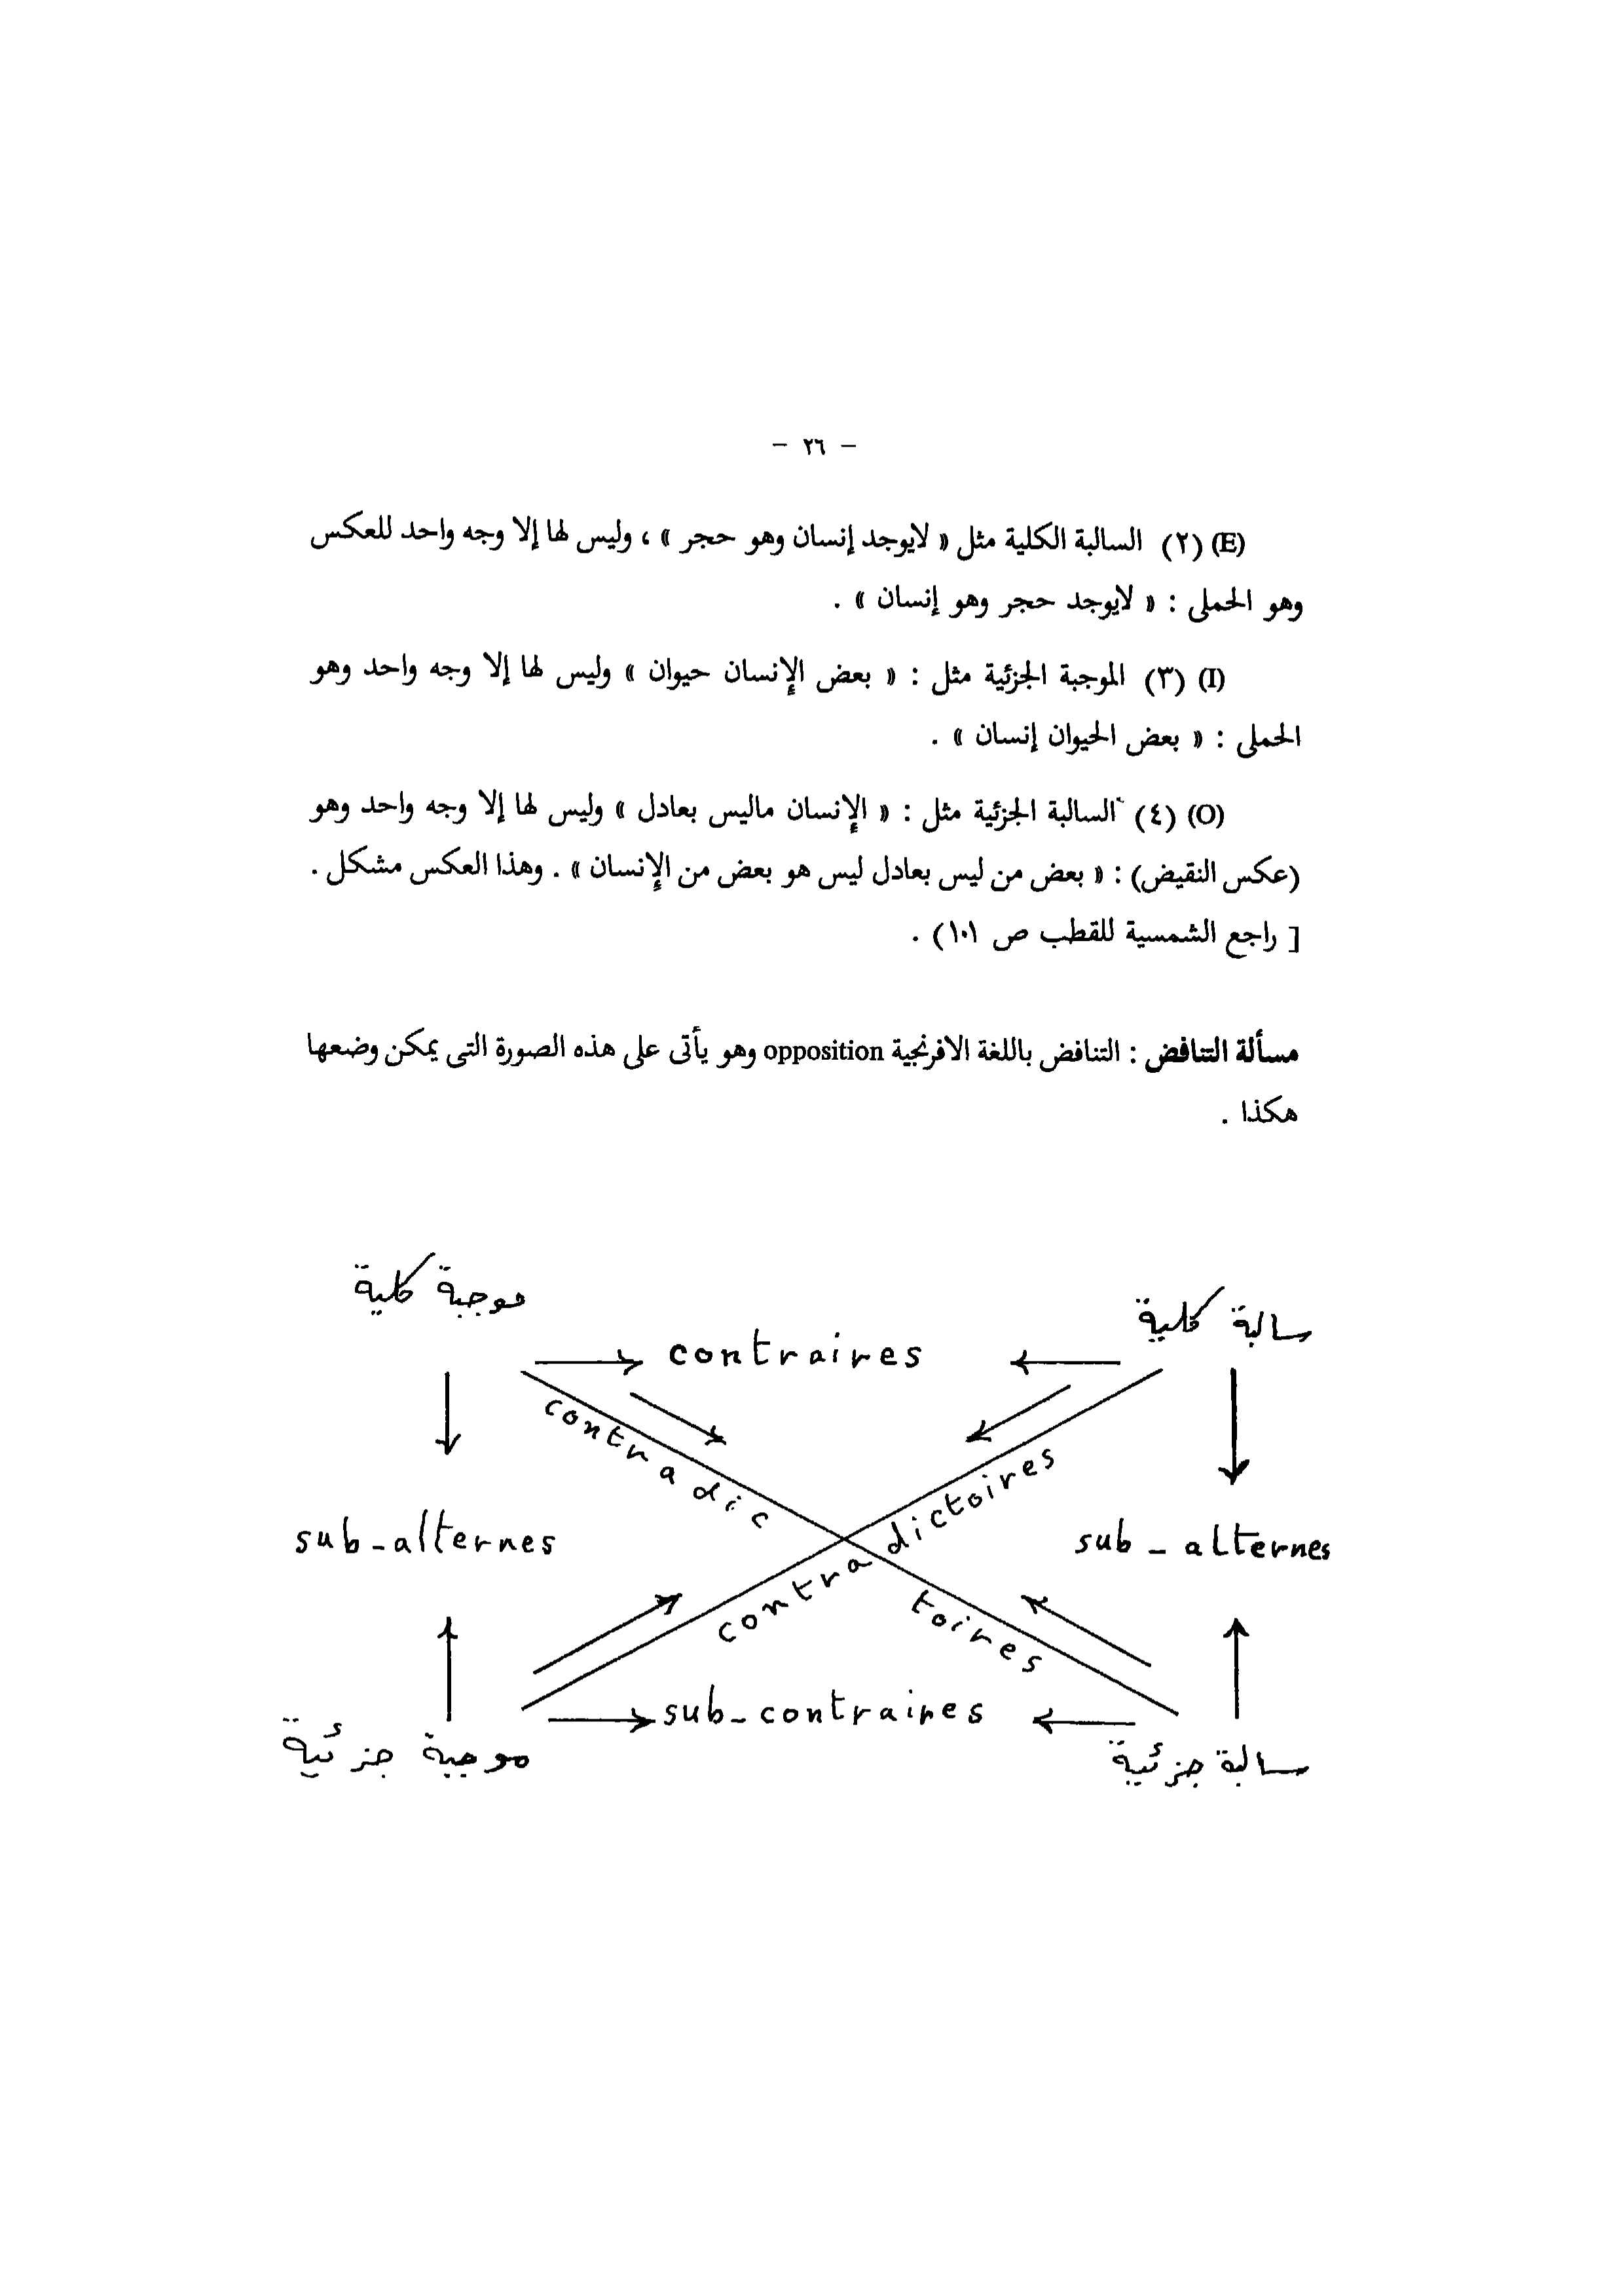 – ٢٦ –
(E) (٢) السالبة الكلية مثل « لايوجد إنسان وهو حجر » ، وليس لها إلا وجه واحد للعكس
وهو الحملى : « لايوجد حجر وهو إنسان » .
(I) (٣) الموجبة الجزئية مثل : « بعض الإنسان حيوان » وليس لها إلا وجه واحد وهو
الحملى : « بعض الحيوان إنسان » .
(O) (٤) السالبة الجزئية مثل : « الإنسان ماليس بعادل » وليس لها إلا وجه واحد وهو
(عكس النقيض) : « بعض من ليس بعادل ليس هو بعض من الإنسان » . وهذا العكس مشكل .
[ راجع الشمسية للقطب ص ١٠١) .
مسألة التنافض : التنافض باللغة الافرنجية opposition وهو يأتى على هذه الصورة التى يمكن وضعها
هكذا .
سالبة كلية
موجبة كلية
contraires
contradic
toires
contra dictoires
sub-alternes
sub-alternes
sub-contraires
سالبة جزئية
موجبة جزئية